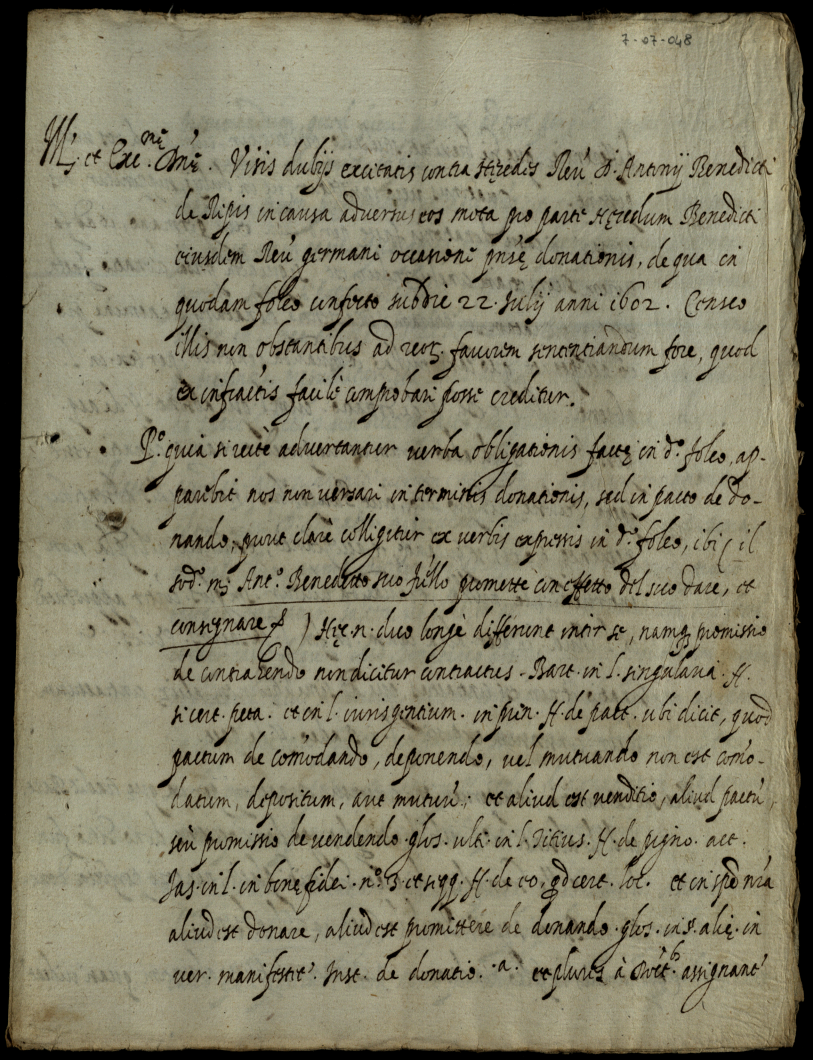 7-07-048
M.s et Exc.me Dn̄e. Visis dubijs excitatis contra Hęredes Reu' D. Antonij Benedicti
de Ripis in causa adversus eos mota pro parte Hęredum Benedicti
eiusdem Reu' germani occasione pn̄sę donationis, de qua in
quodam foleo confecto sub die 22. Julij anni 1602. Censeo
illis non obstantibus ad reor. favorem sententiandum fore, quod
ex infractis facile comprobari posse creditur.
P.o quia si recte advertantur verba obligationis factę in d.o foleo, ap-
parebit nos non versari in terminis donationis, sed in pacto de do-
nando, prout clare colligitur ex verbis expressis in d.o foleo, ibi ( il
sod.o m; Ant.o Benedetto suo f'llo promette con effetto del suo dare, et
consignare ) Hęc n. duo longè differunt inter se, namq; promissio
de contrahendo non dicitur contractus. Bart. in l. singularia. ff.
si cert. peta. et in l. iurisgentium. in prin. ff. de pact. ubi dicit, quod
pactum de com̄odando, deponendo, vel mutuando non est com̄o-
datum, depositum, aut mutuū; et aliud est venditio, aliud pactū,
seù promissio de vendendo. glos. ult. in l. Titius. ff. de pigno. act.
Jas. in l. in bonę fidei. n.o 3. et sqq. ff. de eo. qd cert. loc. et in spē nr̄a
aliud est donare, aliud est promittere de donando. glos. in §. alię. in
ver. manifestet'. Inst. de donatio. a. et plures à assignant'